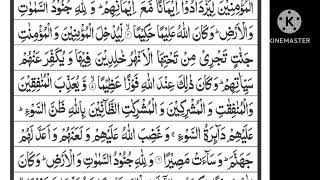 الْمُؤْمِنِيْنَ لِيَزْدَادُوْۤا اِيْمَانًا مَّعَ اِيْمَانِهِمْ ؕ وَلِلّٰهِ جُنُوْدُ السَّمٰوٰتِ
وَالْاَرْضِ ؕ وَكَانَ اللّٰهُ عَلِيْمًا حَكِيْمًا ۙ لِّيُدْخِلَ الْمُؤْمِنِيْنَ وَالْمُؤْمِنٰتِ
جَنّٰتٍ تَجْرِيْ مِنْ تَحْتِهَا الْاَنْهٰرُ خٰلِدِيْنَ فِيْهَا وَيُكَفِّرَ عَنْهُمْ
سَيِّاٰتِهِمْ ؕ وَكَانَ ذٰلِكَ عِنْدَ اللّٰهِ فَوْزًا عَظِيْمًا ۙ وَّيُعَذِّبَ الْمُنٰفِقِيْنَ
وَالْمُنٰفِقٰتِ وَالْمُشْرِكِيْنَ وَالْمُشْرِكٰتِ الظَّآنِّيْنَ بِاللّٰهِ ظَنَّ السَّوْءِ ؕ
عَلَيْهِمْ دَآىِٕرَةُ السَّوْءِ ۚ وَغَضِبَ اللّٰهُ عَلَيْهِمْ وَلَعَنَهُمْ وَاَعَدَّ لَهُمْ
جَهَنَّمَ ؕ وَسَآءَتْ مَصِيْرًا وَلِلّٰهِ جُنُوْدُ السَّمٰوٰتِ وَالْاَرْضِ ؕ وَكَانَ
KINEMASTER